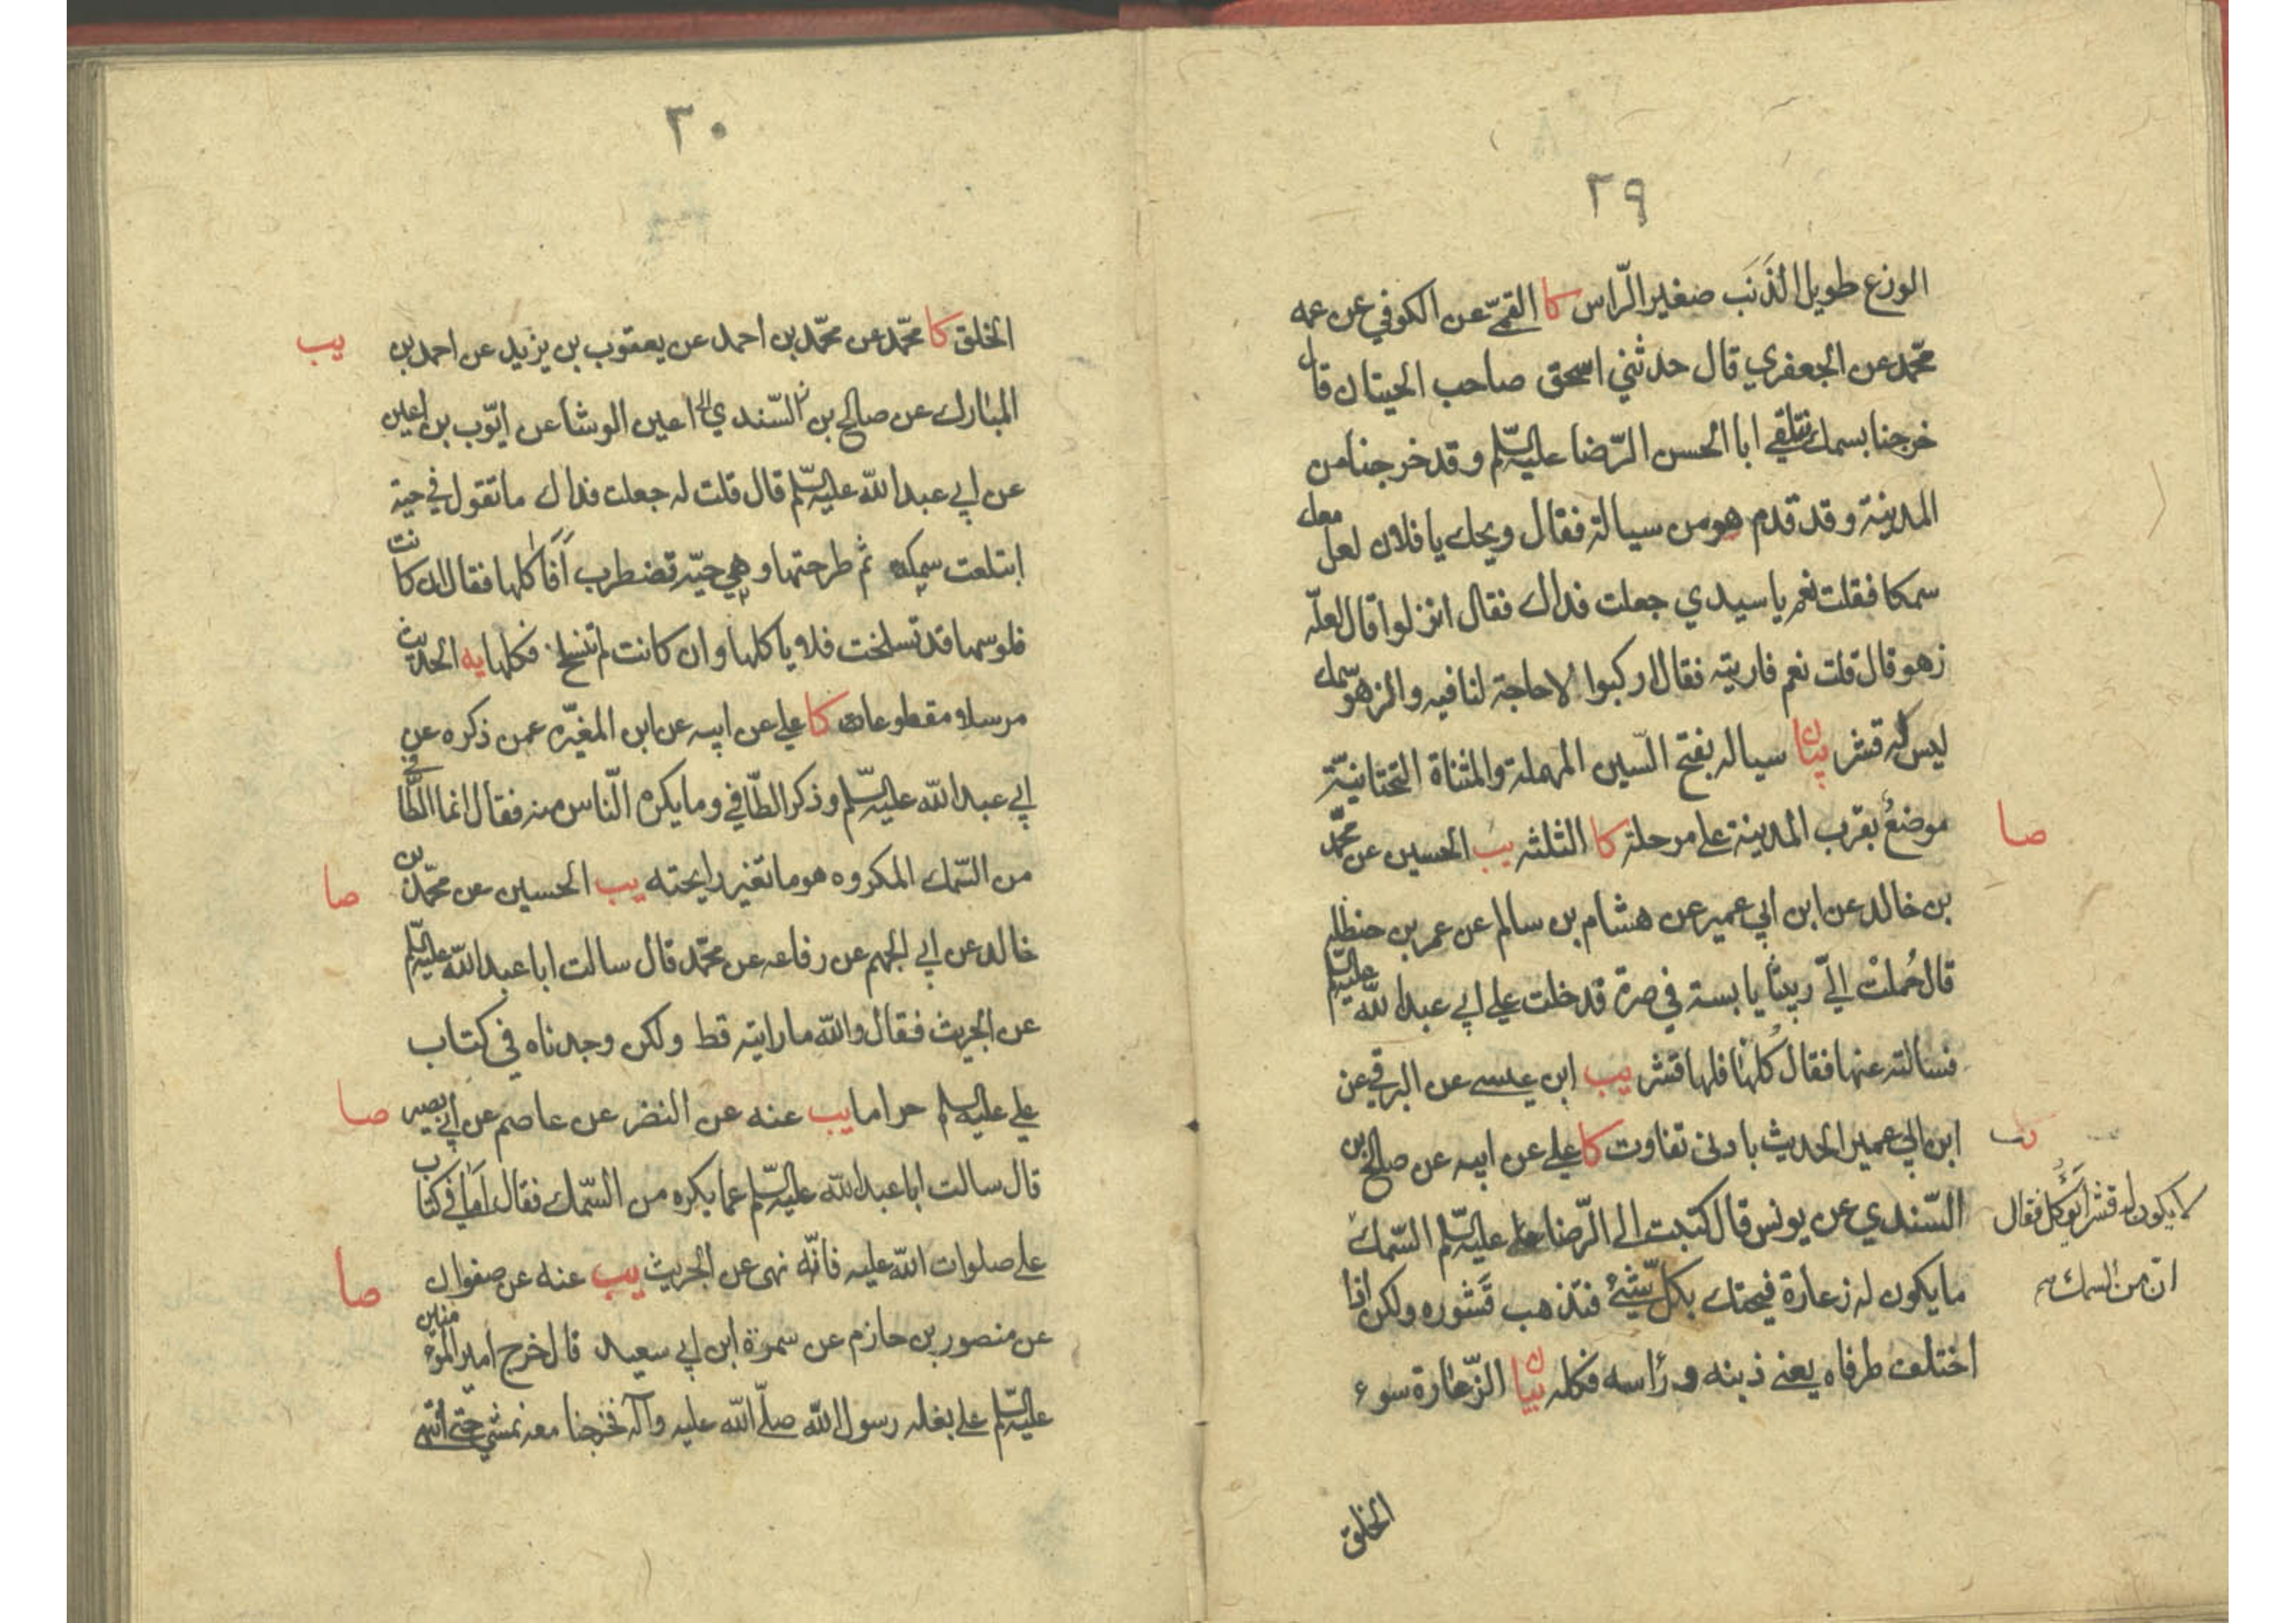 ٢٩
الوزع طويل الذَنَب صغير الرّاس كا القمّي عن الكوفي عن عمه
محمّد عن الجعفري قال حدثني اسحق صاحب الحيتان قال
خرجنا بسمك نتلقي ابا الحسن الرّضا عليه السّلم وقد خرجنا من
المدينة وقد قدم هو من سيالة فقال ويحك يا فلان لعل معك
سمكا فقلت نعم يا سيدي جعلت فداك فقال انزلوا قال لعلّه
زهو قال قلت نعم فاريته فقال اركبوا لا حاجة لنا فيه والزهو سمك
ليس له قشر بيان سياله بفتح السّين المهملة والمثناة التحتانيّة
موضعُ بقرب المدينة علي مرحلة كا الثلثه يب الحسين عن محمّد
صا
بن خالد عن ابن ابي عمير عن هشام بن سالم عن عمر بن حنظله
قال حُملتْ اليّ ربيثا يابسة في صرة قد خلت علي ابي عبد الله عليه السّلم
فسالته عنها فقال كُلها فلها قشر يب ابن عيسي عن البرقي عن
ابن ابي عمير الحديث بادنى تفاوت كا علي عن ابيه عن صالح بن
يب
السّندي عن يونس قال كتبت الى الرّضا عليه السّلم السّمك
لا يكون له قشر ايؤكل فقال
ان من السمك
ما يكون له زعارة فيحتك بكل شئ فتذهب قشوره ولكن اذا
اختلف طرفاه يعني ذبنه و راسه فكله بيان الزّعارة سوء
الخلق
٣٠
الخلق كا محمّد عن محمّد بن احمد عن يعقوب بن يزيد عن احمد بن
يب
المبارك عن صالح بن السّندي اعين الوشا عن ايّوب بن اعين
عن ابي عبد الله عليه السّلم قال قلت له جعلت فداك ما تقول في حية
ابتلعت سمكة ثم طرحتها وهي حيّة تضطرب اَفَاٰكلها فقال ان كانت
فلوسها قد تسلخت فلا ياكلها وان كانت لم تنسلخ فكلها يه الحديث
مرسلا مقطوعا كا علي عن ابيه عن ابن المغيّره عمن ذكره عن
ابي عبد الله عليه السّلم وذكر الطّافي وما يكره النّاس منه فقال انما الطّافي
من السّمك المكروه هو ما تغير رايحته يب الحسين عن محمّد بن
صا
خالد عن ابي الجهم عن رفاعه عن محمّد قال سالت ابا عبد الله عليه السّلم
عن الجريث فقال والله ما رايته قط ولكن وجدناه في كتاب
علي عليه السلم حراما يب عنه عن النضر عن عاصم عن ابي بصير
صا
قال سالت ابا عبد الله عليه السّلم عما يكره من السّمك فقال اَمّا في كتاب
علي صلوات الله عليه فانّه نهى عن الجريث يب عنه عن صفوان
صا
عن منصور بن حازم عن سمرة ابن ابي سعيد قال خرج امير المؤمنين
عليه السّلم علي بغله رسول الله صلّي الله عليه وآله فخرجنا معه نمشي حتّي انتهي